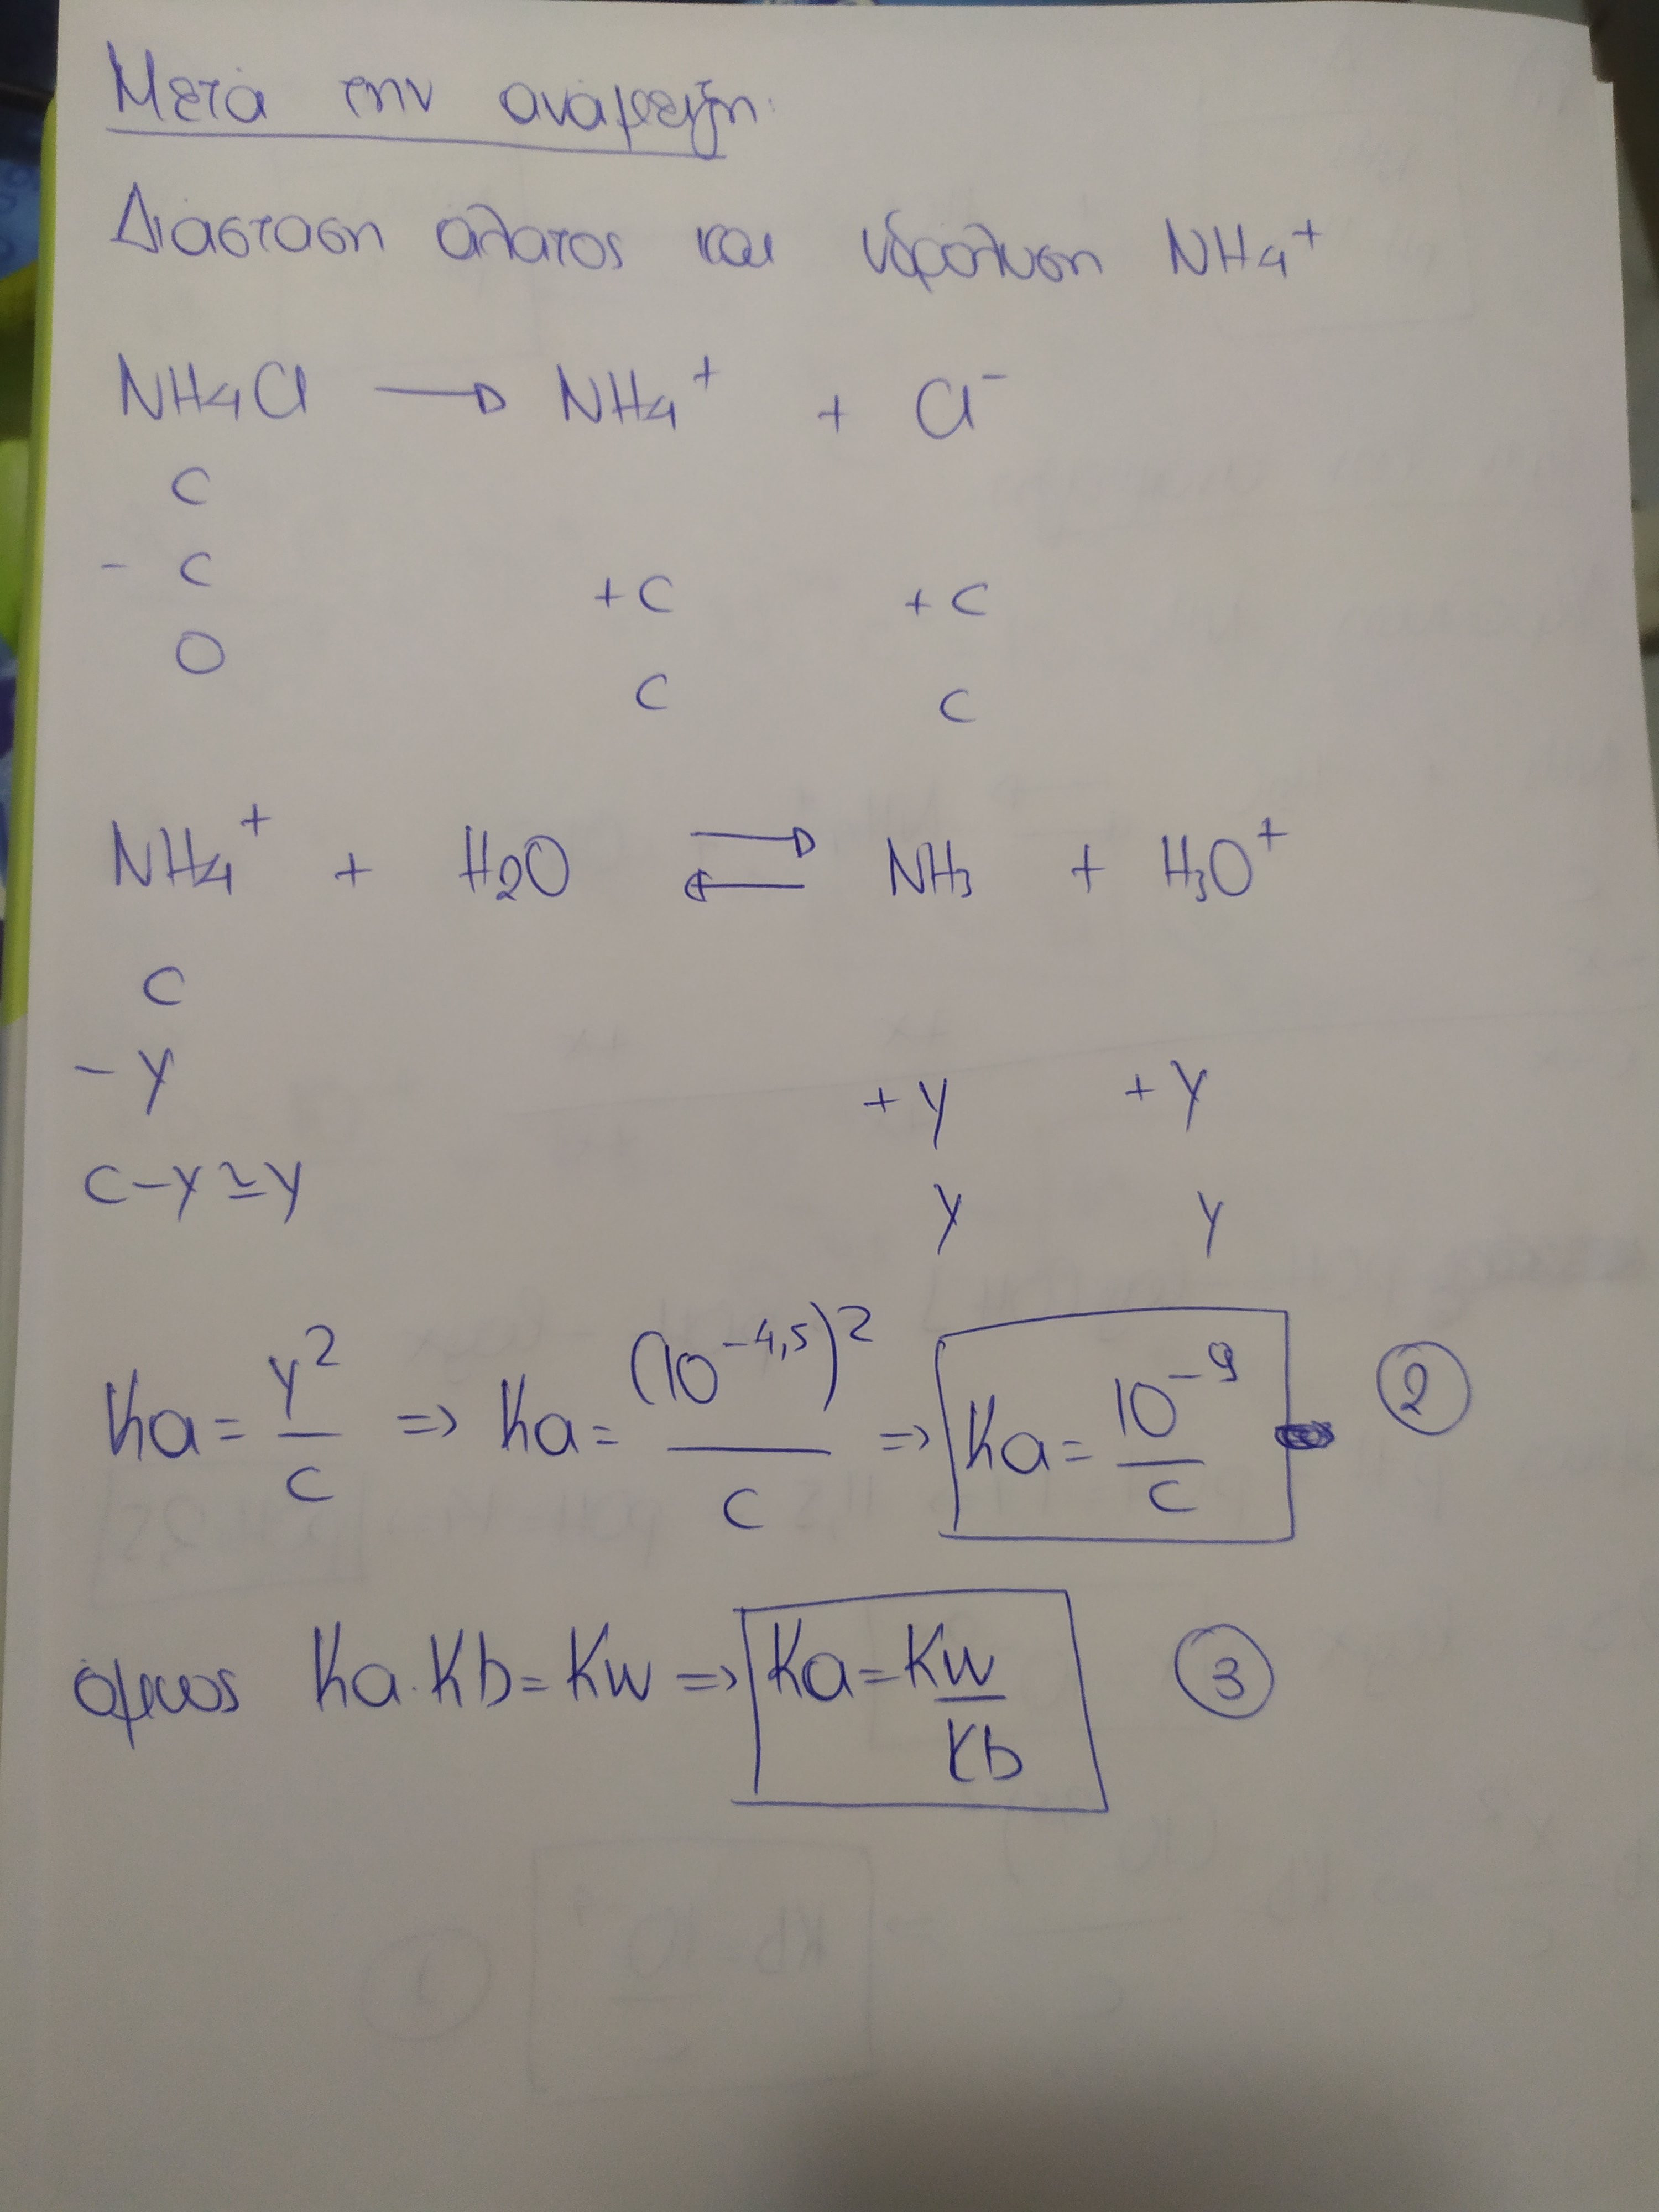 Μετά την ανάμειξη:
Διάσταση άλατος και υδρόλυση NH4+
NH4Cl → NH4+ + Cl-
C
- C +C +C
0 C C
NH4+ + H2O ⇌ NH3 + H3O+
C
- y +y +y
C-y≃y y y
Ka = y²/C => Ka = (10^-4,5)²/C => Ka = 10^-9/C ②
όμως Ka·Kb = Kw => Ka = Kw/Kb ③